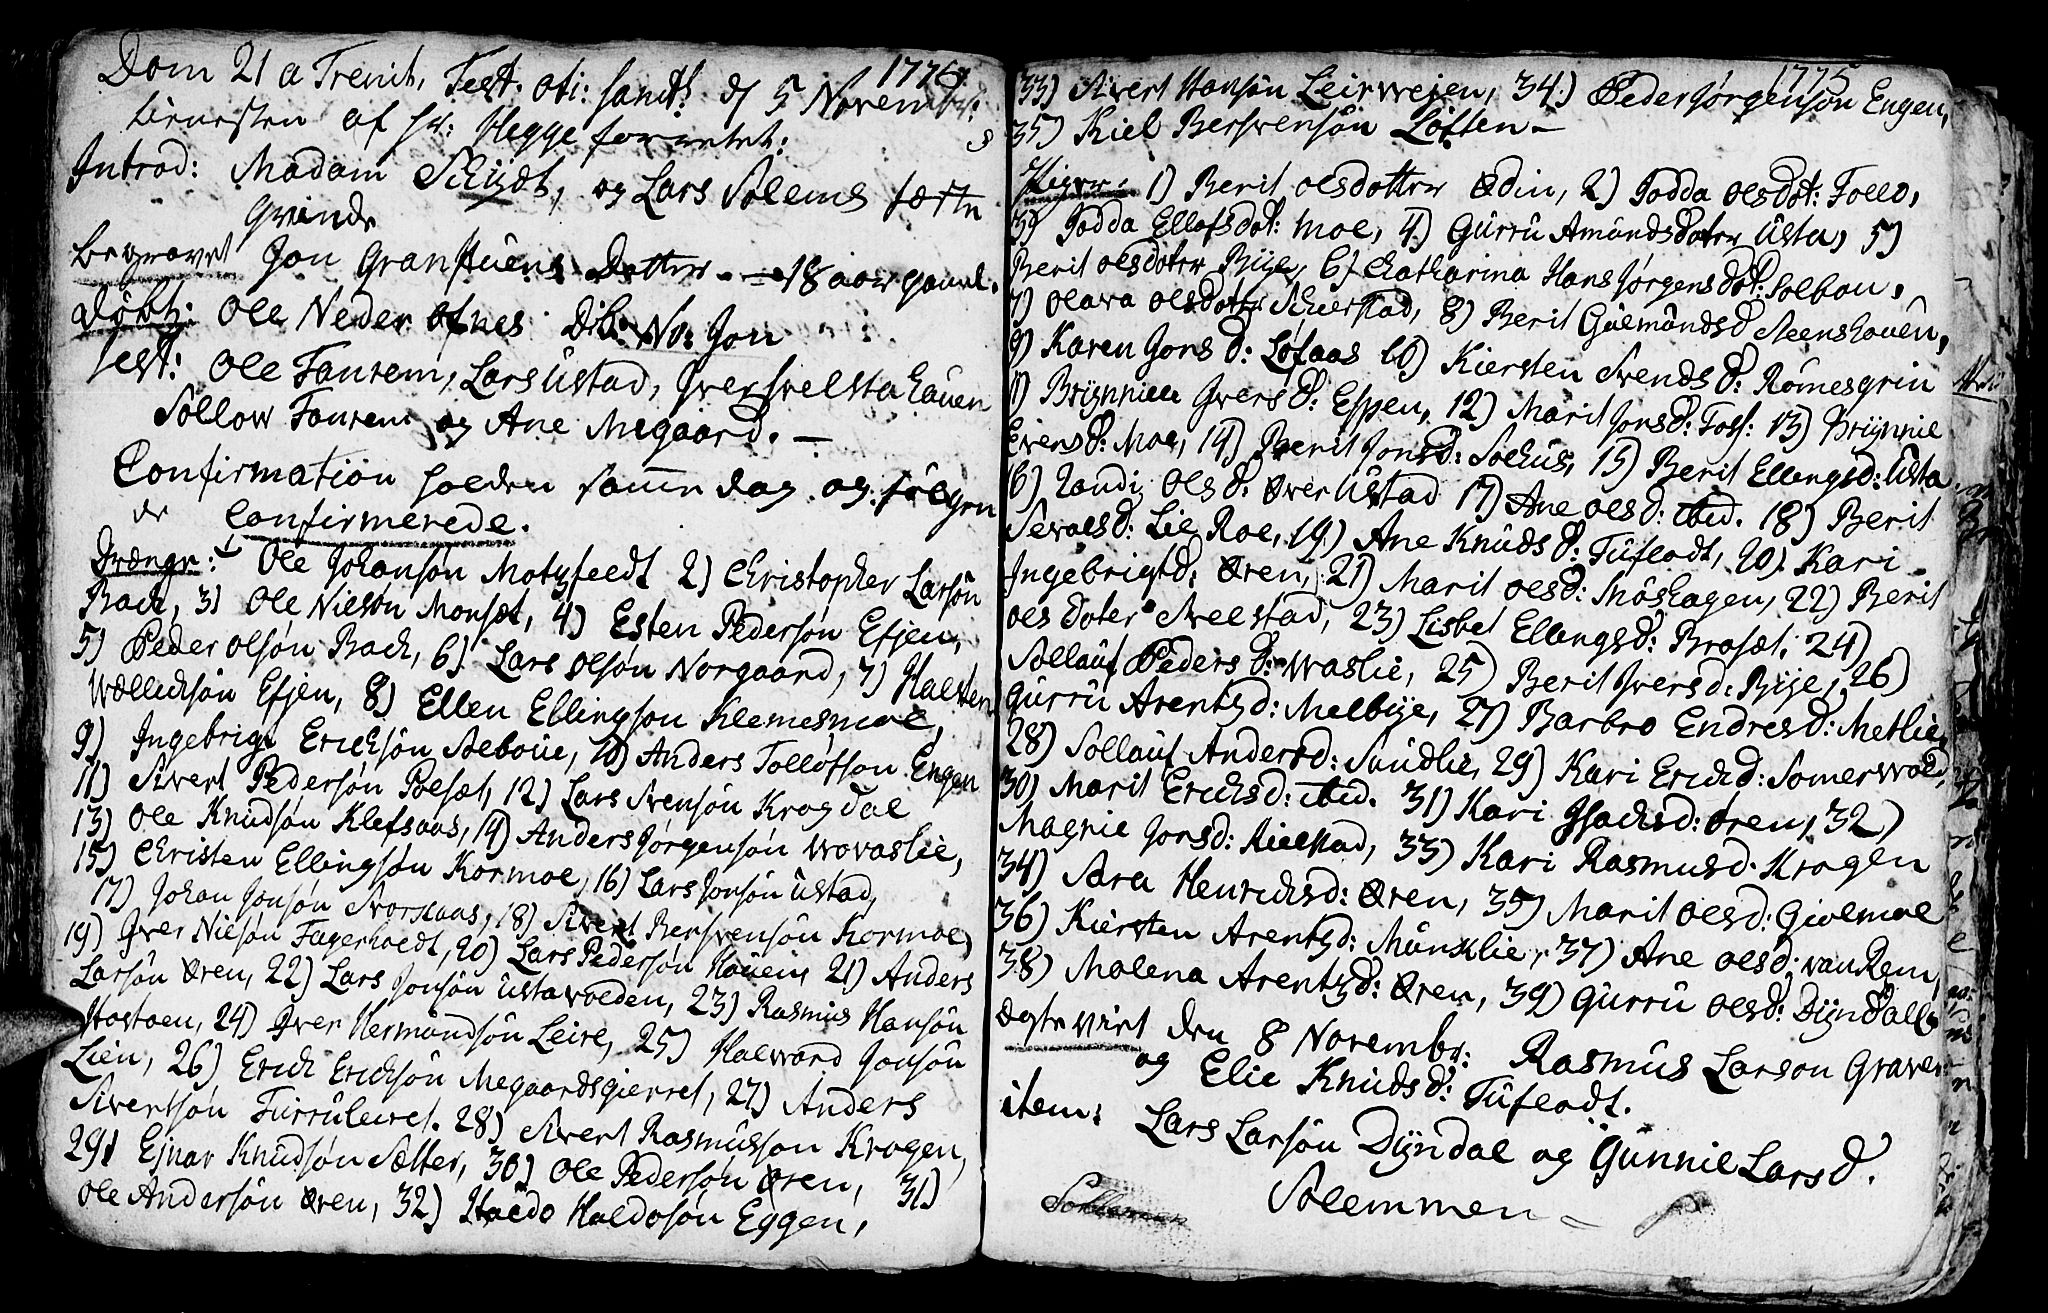 1775
Dom 21 a Trenit, Fest. oti: sanct: d 5 Novembr:
tienesten af Hr: Hegge forrettet:
Introd: Madam Schydt, og Lars Solems fæste
qvinde
begravet Jon Granstuens Datter - 18 aar gaml.
døbt: Ole Neder Ofnes Dib: No: Jon
test: Ole Fanrem, Lars Ustad, Iver
Sollow Fanrem og Ane Megaard. -
Confirmation holden samme dag og følgen
de Confirmerede.
Drænge: 1 Ole Johansøn Motzfeedt 2) Christopher Larsøn
Bach, 3) Ole Nielsøn Monset, 4) Esten Pedersøn Efjen,
5) Peder Olsøn Bach, 6) Lars Olsøn Norgaard, 7) Halsten
Efjen, 8) Ellen Ellingsøn Klemesmoe,
9) Ingebrigt Erichsøn Aeboue, 10) Anders Tollofson Engen
11) Sivert Pedersøn Poeset, 12) Lars Svensøn Krogdal
13) Ole Knudsøn Klefsaas, 14) Anders Jørgensøn Wovaslie,
15) Christen Ellingsøn Kormoe, 16) Lars Jonsøn Ustad,
17) Johan Jonsøn Svorkaas, 18) Sivert Bersvensøn Kormoe,
19) Iver Nilsøn Fagerholdt, 20) Lars Pedersøn Houem, 21) Anders
Larsøn Øren, 22) Lars Jonsøn Ustavolden, 23) Rasmus Hansøn
Hostoen, 24) Iver Hermundsøn Leire, 25) Halvord Jonsøn
Lien, 26) Erich Erichsøn Megaardsgierret, 27) Anders
Sivertsøn Furruleiret. 28) Sivert Rasmusson Krogen,
29) Ejnar Knudsøn Sætter, 30) Ole Pedersøn Øren, 31)
Ole Andersøn Øren, 32) Haldo Haldosøn Eggen,
1775
33) Sivert Hansøn Leirvejen, 34) Peder Jørgensøn Engen,
35) Kiel Bersvensøn Løften -
Piger. 1) Berit Olsdotter Ødin, 2) Todda Olsdot: Follo,
3) Todda Ellofsdot: Moe, 4) Gurru Amundsdoter Usta, 5)
Berit Olsdoter Bije, 6) Chatharina Hans Jørgensdot: Solbou,
7) Olava Olsdotter Skierstad, 8) Berit Gulmundsd Steenshouen,
9) Karen Jonsd: Løfaas 10) Kiersten Svendsd: Rømesgrin
11) Brynnien Iversd: Espen, 12) Marit Jonsd: Foss: 13) Brynnie
Evensd: Moe, 14) Berit Jonsd: Solhus, 15) Berit Ellingsd: Usta
16) Randi Olsd: Øver Ustad 17) Ane Olsd: Ibid. 18) Berit
Sevaldsd: Lie Roe, 19) Ane Knudsd: Tufladt, 20) Kari
Ingebrigtd: Øren, 21) Marit Olsd: Snøshagen, 22) Berit
Olsdoter Melstad, 23) Lisbet Ellingsd: Broset, 24)
Sollaug Pedersd: Waslie, 25) Berit Iversd: Bije, 26)
Gurru Arentzd: Melbye, 27) Barbro Endresd: Metlie,
28) Sollaug Andersd: Sundlie, 29) Kari Erichd: Somervold,
30) Marit Erichsd: Ibid. 31) Kari Isachsd: Øren, 32)
Magnie Jonsd: Rielstad, 33) Kari Rasmusd. Krogen
34) Sara Henrichsd: Øren, 35) Marit Olsd: Giolmoe
36) Kiersten Arentzd: Munklie, 37) Ane Olsd: vanRem,
38) Malena Arentzd: Øren, 39) Gurru Olsd: Dyndall
Egtevict den 8 Novembr: Rasmus Larson Graver
og Elie Knudsd: Tufladt.
item: Lars Larsøn Dyndal og Gunnil Larsd.
Solemmen -